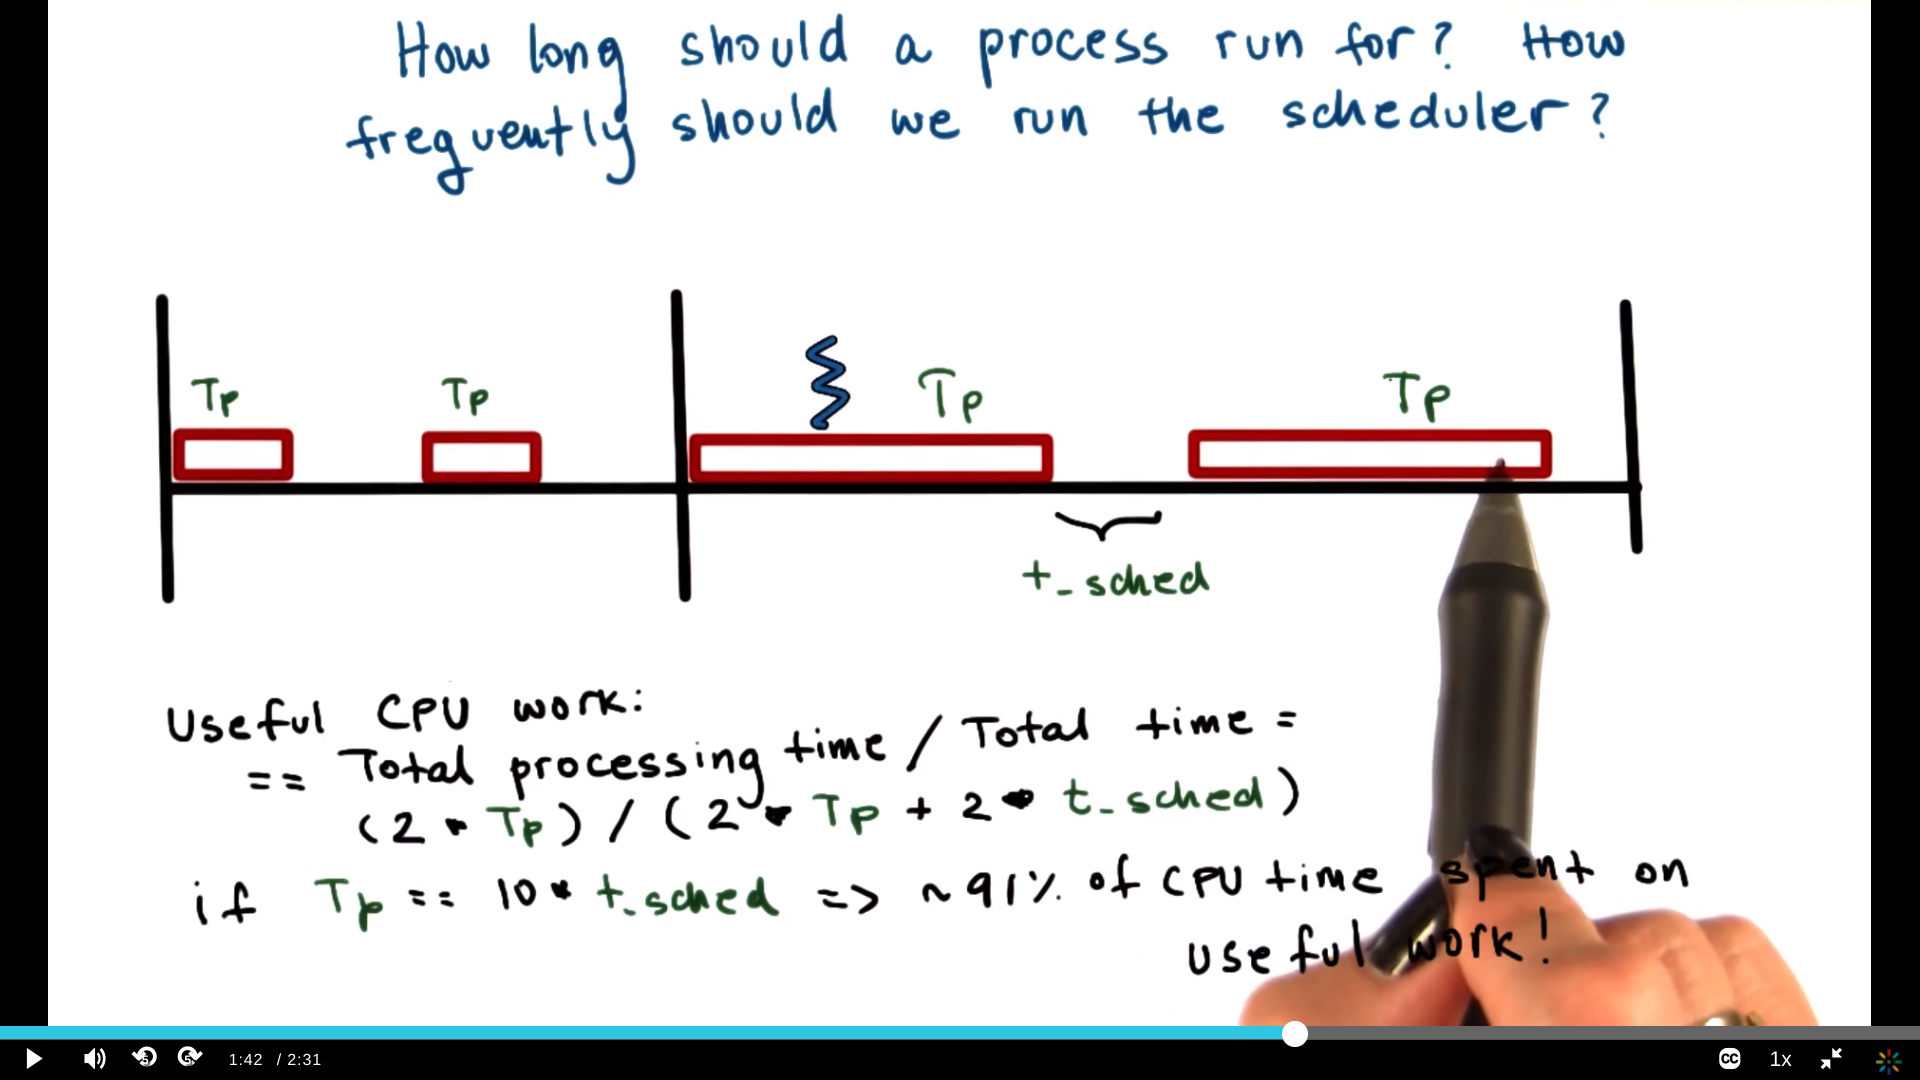 How long should a process run for? How
frequently should we run the scheduler?
Tp
Tp
Tp
Tp
t_sched
Useful CPU work:
== Total processing time / Total time =
(2 * Tp) / (2 * Tp + 2 * t_sched)
if Tp == 10 * t_sched => ~91% of CPU time spent on
useful work!
5
5
1:42 / 2:31
CC
1x